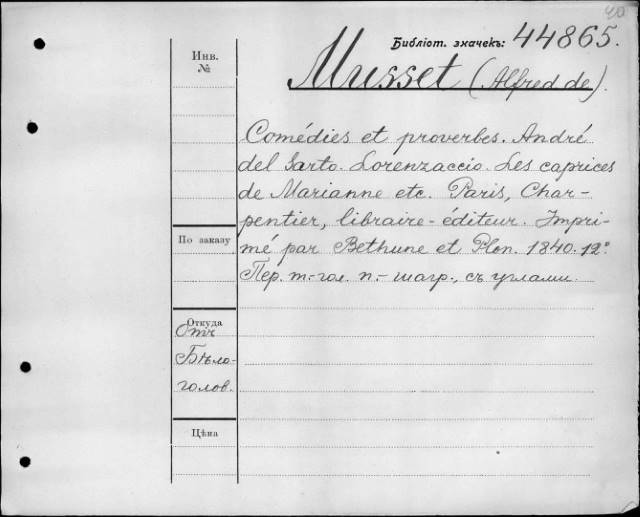 40
Библіот. значекъ: 44865.
Инв.
№
Musset (Alfred de).
Comédies et proverbes. André
del Sarto. Lorenzaccio. Les caprices
de Marianne etc. Paris, Char-
pentier, libraire-éditeur. Impri-
По заказу
mé par Bethune et Plon. 1840. 12°.
Пер. т.-гол. п.-шагр., съ углами.
Откуда
Отъ
Бѣло-
голов.
Цѣна